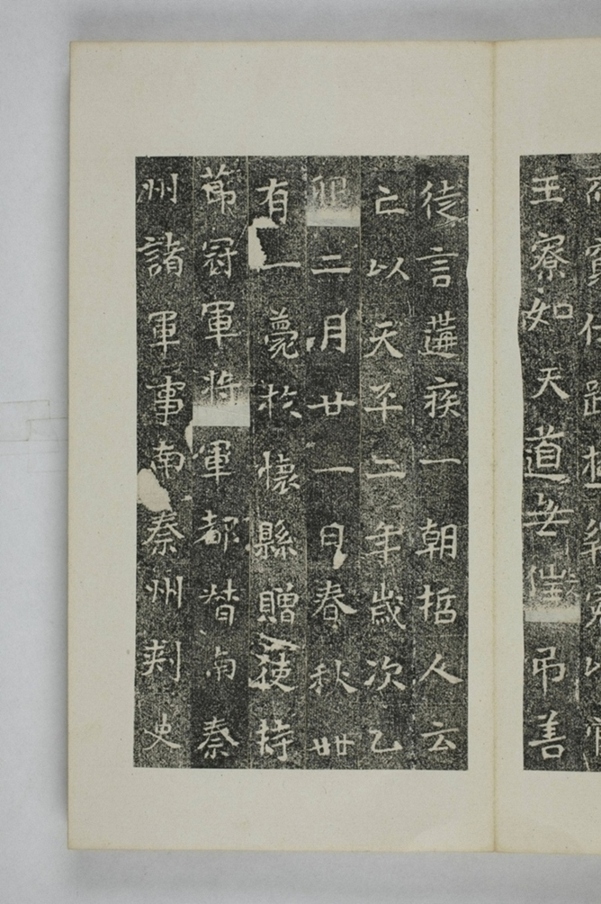 王寮如天道无弔善
徒言遘疾一朝哲人云
亡以天平二年歲次乙
卯二月廿一日春秋卌
有一薨於懷縣贈使持
節冠軍將軍都督南秦
州諸軍事南秦州刺史